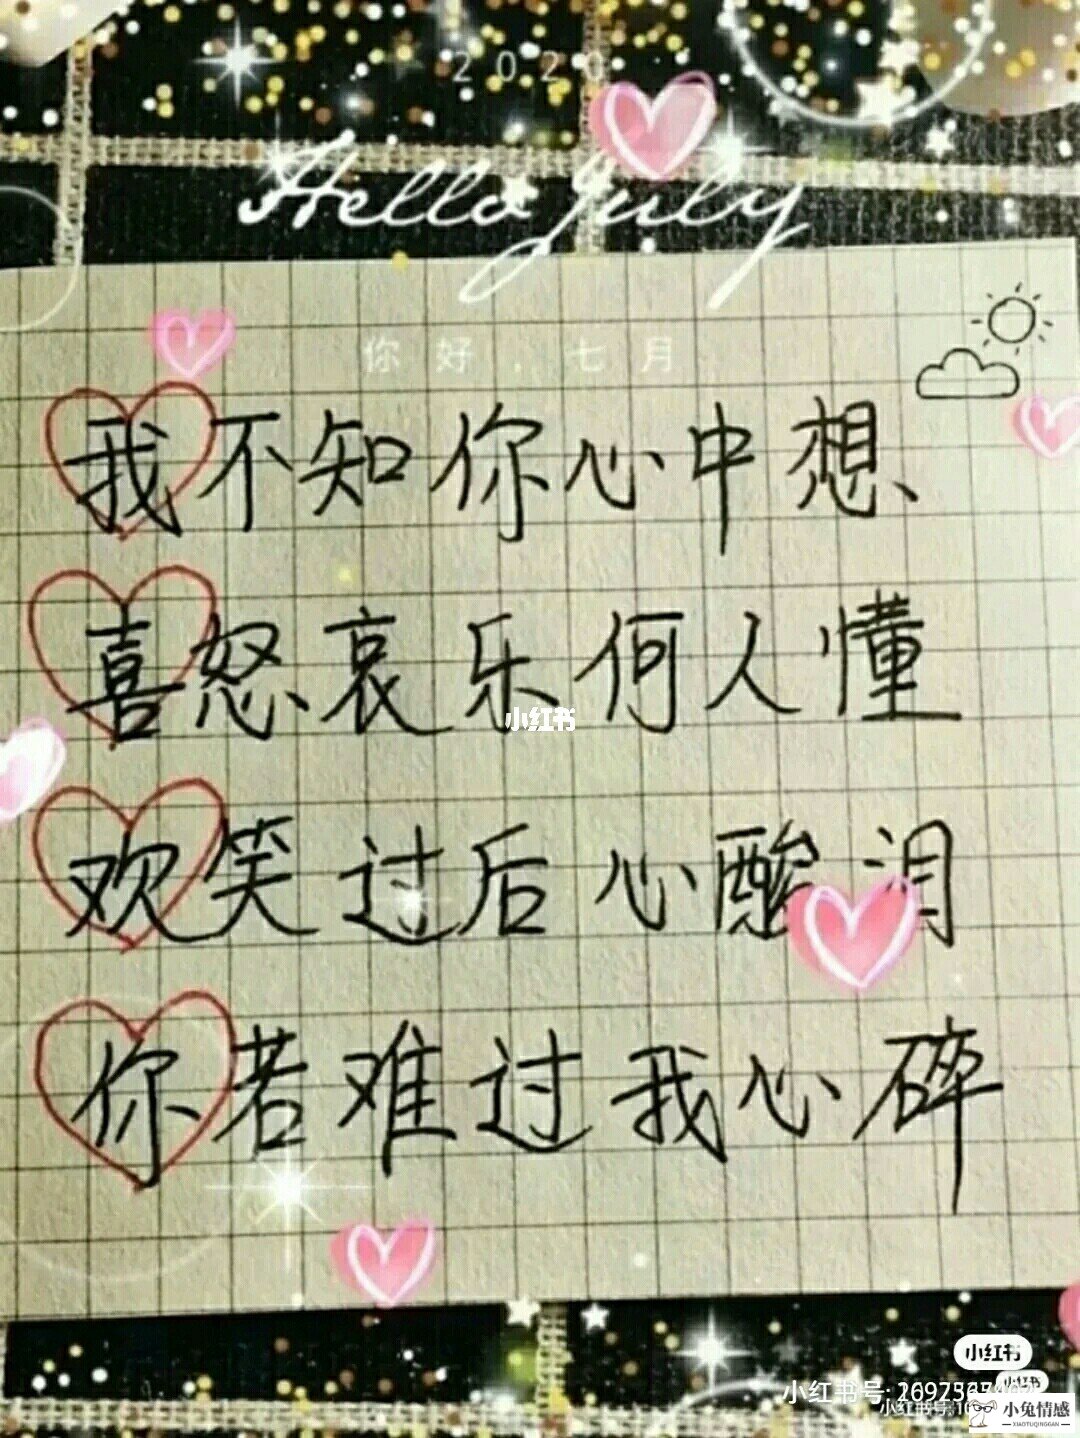 2020
Hello July
你好，七月
我不知你心中想
喜怒哀乐何人懂
小红书
欢笑过后心酸泪
你若难过我心碎
小红书
小红书
小红书号:
小兔情感
XIAOTUQINGGAN